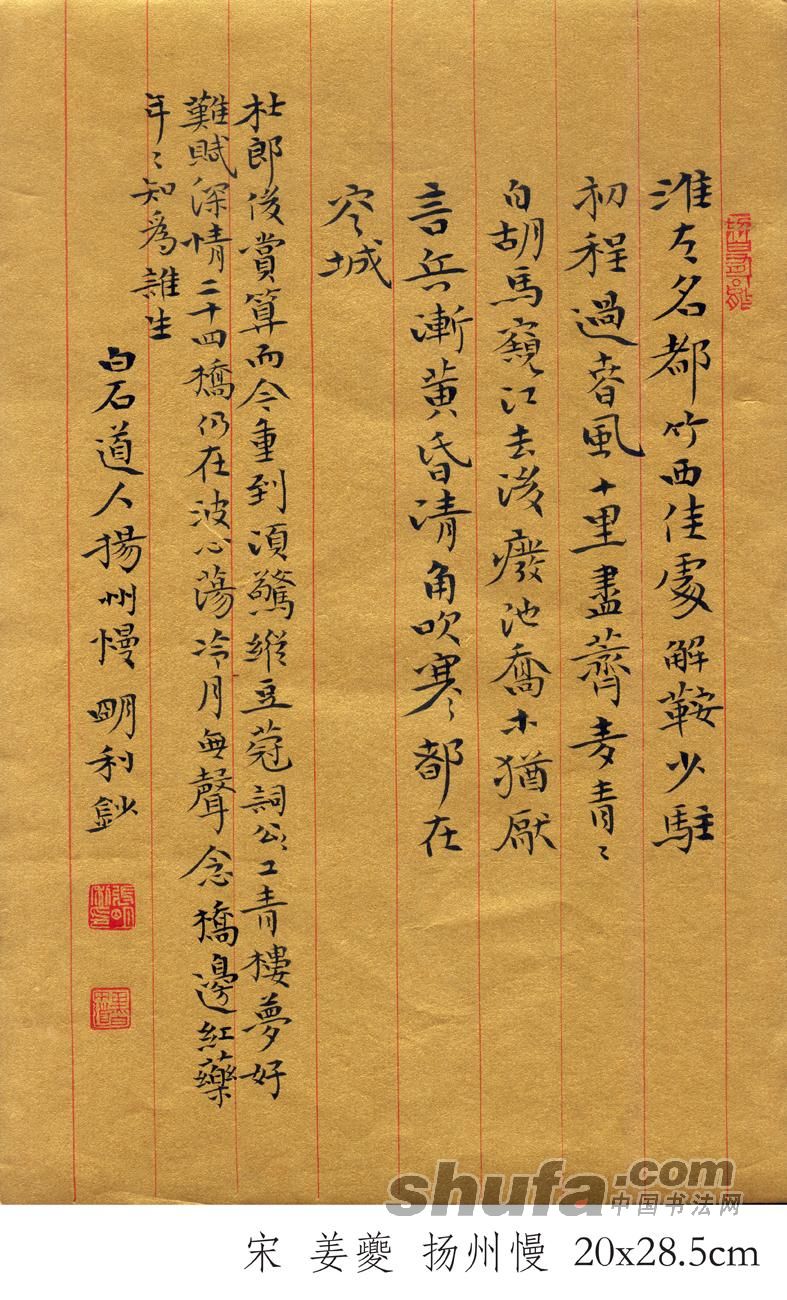 淮左名都竹西佳處解鞍少駐
初程過春風十里盡薺麥青〻
自胡馬窺江去後廢池喬木猶厭
言兵漸黃昏清角吹寒都在
空城
杜郎俊賞算而今重到須驚縱豆蔻詞公工青樓夢好
難賦深情二十四橋仍在波心蕩冷月無聲念橋邊紅藥
年〻知爲誰生
白石道人揚州慢 明利鈔
shufa.com
中国书法网
宋 姜夔 扬州慢 20x28.5cm